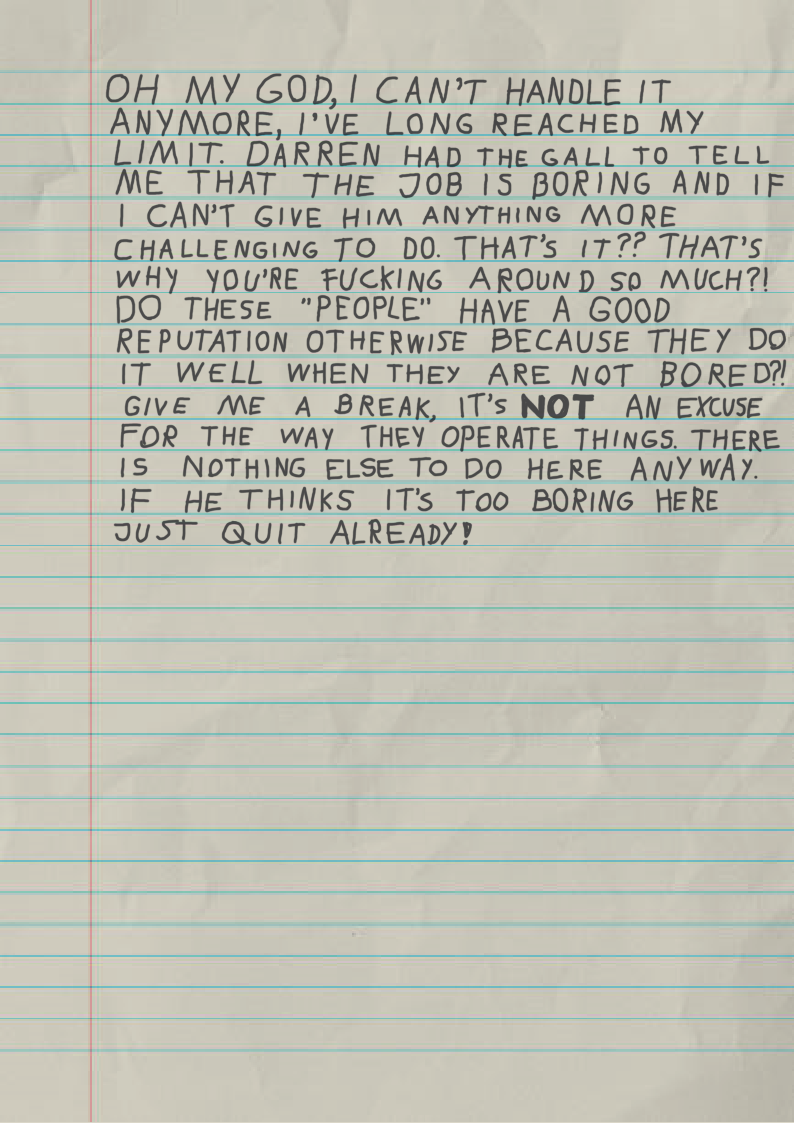 OH MY GOD, I CAN'T HANDLE IT
ANYMORE, I'VE LONG REACHED MY
LIMIT. DARREN HAD THE GALL TO TELL
ME THAT THE JOB IS BORING AND IF
I CAN'T GIVE HIM ANYTHING MORE
CHALLENGING TO DO. THAT'S IT?? THAT'S
WHY YOU'RE FUCKING AROUND SO MUCH?!
DO THESE "PEOPLE" HAVE A GOOD
REPUTATION OTHERWISE BECAUSE THEY DO
IT WELL WHEN THEY ARE NOT BORED?!
GIVE ME A BREAK, IT'S NOT AN EXCUSE
FOR THE WAY THEY OPERATE THINGS. THERE
IS NOTHING ELSE TO DO HERE ANYWAY.
IF HE THINKS IT'S TOO BORING HERE
JUST QUIT ALREADY!